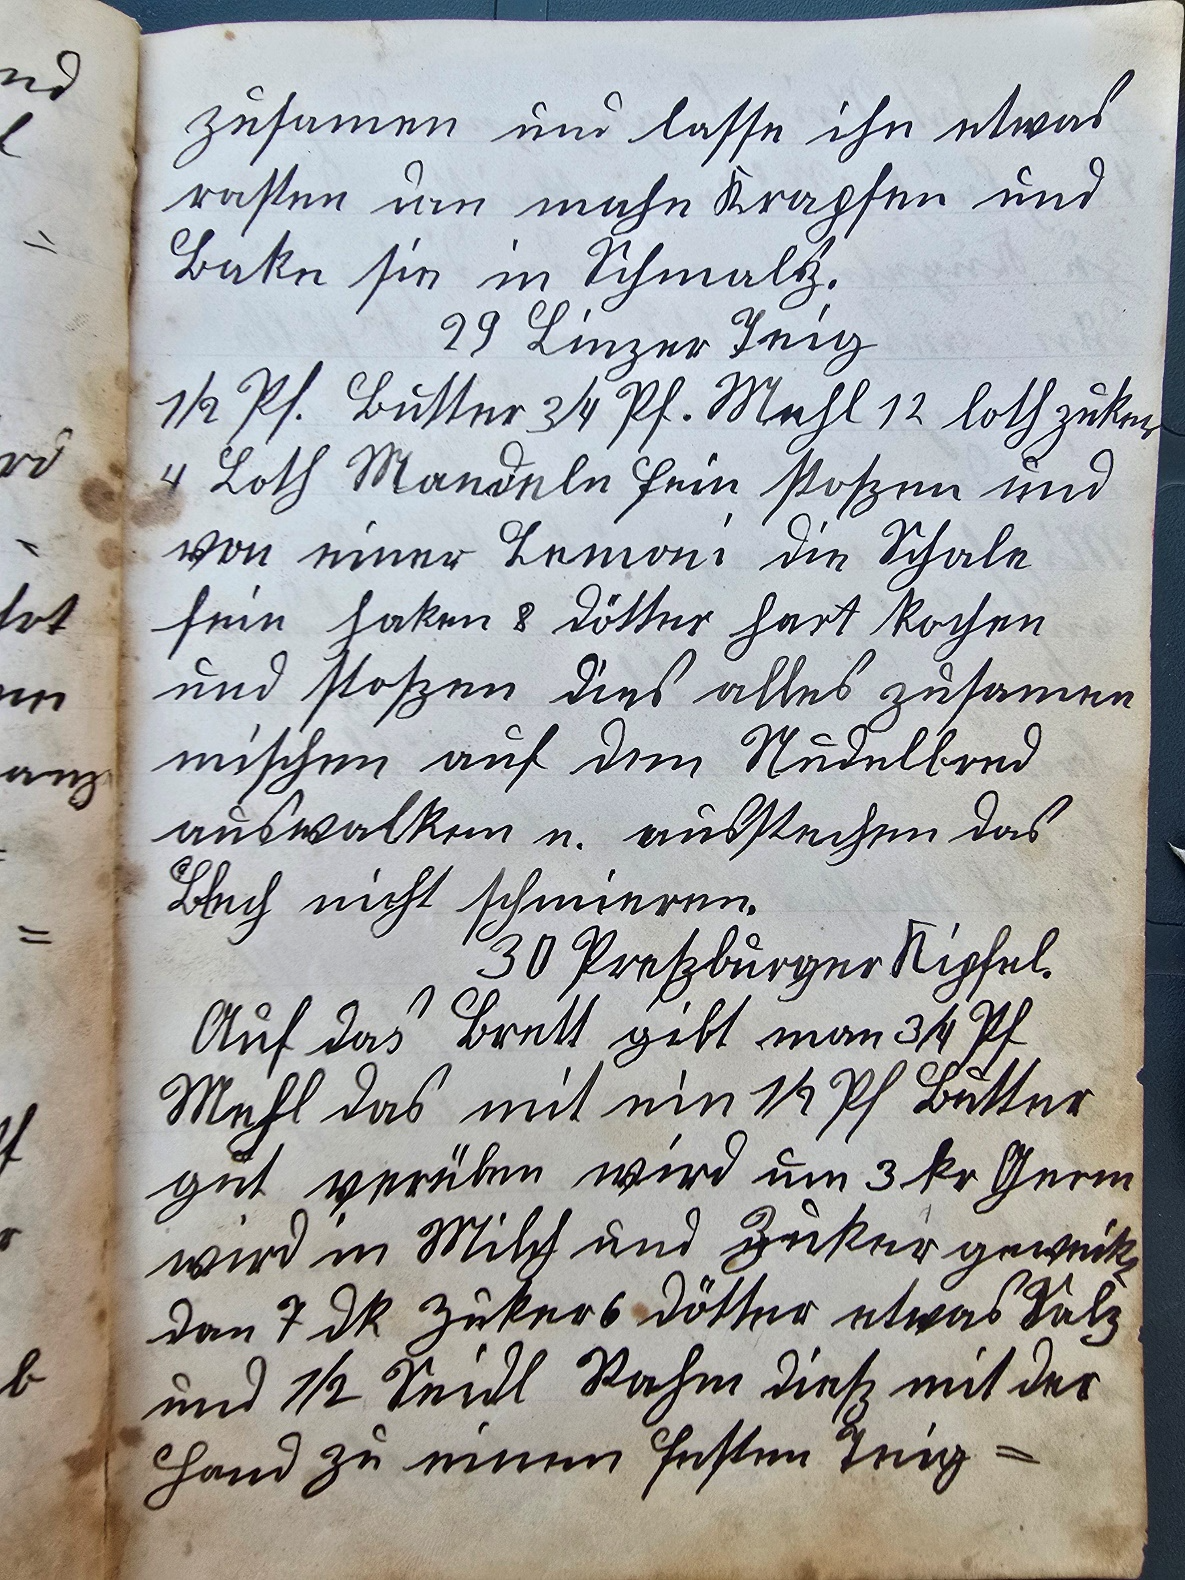 nd
l
=
rd
trt
en
anz
=
b
zusamen und lasse ihn etwas
rasten dan mache Krapfen und
Bake sie in Schmalz.
29 Linzer Teig
1/2 Pf. Butter 3/4 Pf. Mehl 12 loth zuker
4 Loth Mandeln fein stoßen und
von einer Lemoni die Schale
fein haken 8 dötter hart kochen
und stoßen dies alles zusamen
mischen auf dem Nudelbred
auswalken u. ausstechen das
Blech nicht schmieren.
30 Preßburger Kipfel.
Auf das Brett gibt man 3/4 Pf
Mehl das mit ein 1/2 Pf Butter
gut verüben wird um 3 kr Germ
wird in Milch und Zuker geweikt
dan 7 dk Zuker 6 dötter etwas Salz
und 1/2 Seidl Rahm dieß mit der
Hand zu einem festen Teig =